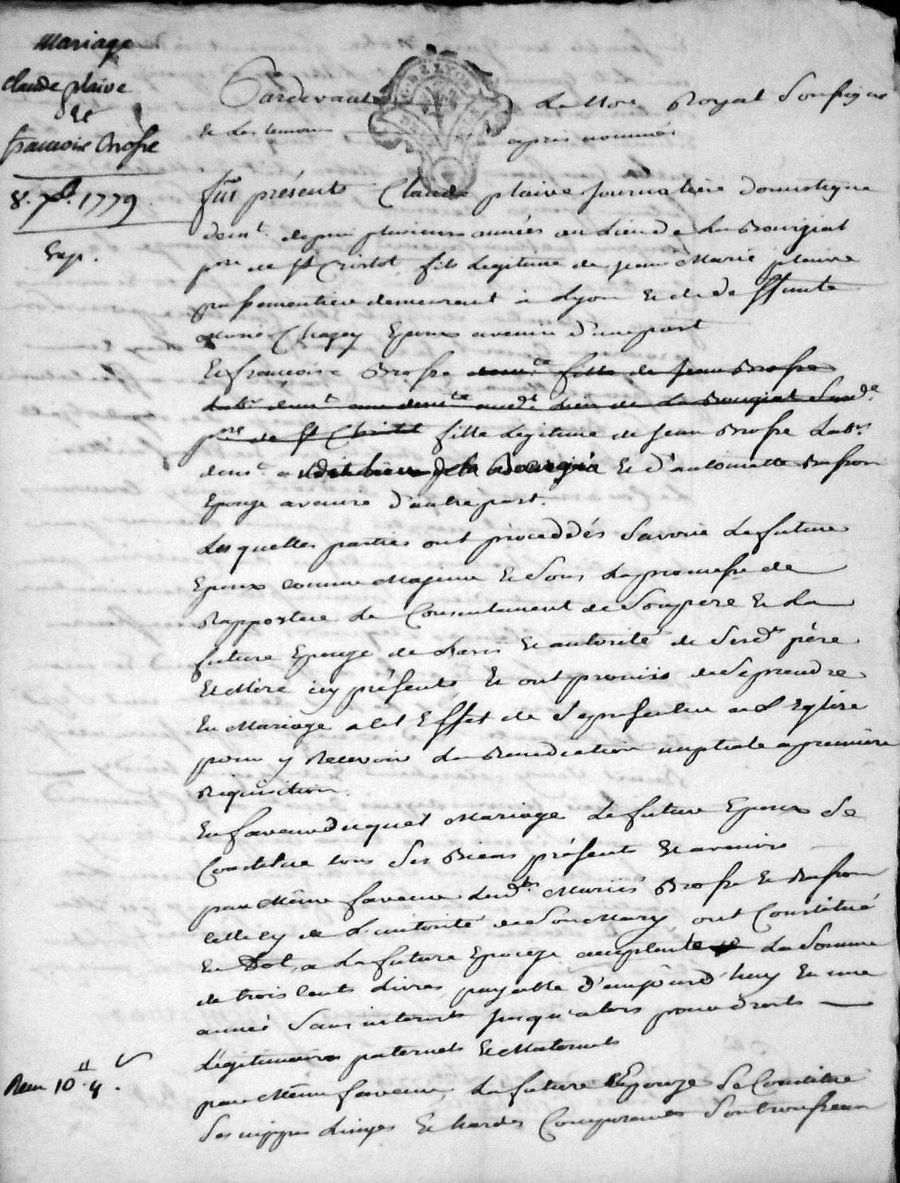 Mariage
Claude plaive
Et
francoise Brosse
8. 7b. 1779
Exp.
Pardevant Le Nore Royal Soussigne
Et Les temoins apres nommés
fut présents Claude plaive Journallier domestique
demt. depuis plusieurs années au Lieu de La Bourgiat
psse de st Cristot, fils Legitime de Jean Marie plaive
passementier demeurant à Lyon Et de deffunte
Marie Chapey Epoux avenir d'une part
Et francoise Brosse fille de Jean Brosse
Labr. demt. audt. Lieu de La Bourgiat Susd.
psse de st Christot fille Légitime de Jean Brosse Labr.
demt. audit lieu de la Bourgia Et d'antoinette
Epouze avenire d'autre part.
Les quelles parties ont proceddés Savoir Le future
Epoux comme Majeur Et Sous La promesse de
Rapporter Le Consentement de Son pere Et La
future Epouze de Lavis Et autorité de Sesdt. père
Et Mère icy présents Et ont promis de Se prendre
En Mariage a Cet Effet de Se presenter a L'Eglise
pour y Recevoir La Benediction nuptiale a première
Requisition.
En faveur duquel Mariage Le future Epoux Se
Constitue tous Ses Biens présent Et avenirs
par Même faveur Lesdts. Mariés Brosse Et
Celle cy de L'autorité de Son Mary ont Constitué
En Dot, a La future Epouze acceptante La Somme
de trois Cents Livres payable d'aujourd'huy En une
année Sans interets Jusqu'alors pour droits
Légitimaires paternels Et Maternels
par Même faveur La future Epouze Se Constitue
Ses nippes Linges Et hardes Comprenants Son trousseau
10 4